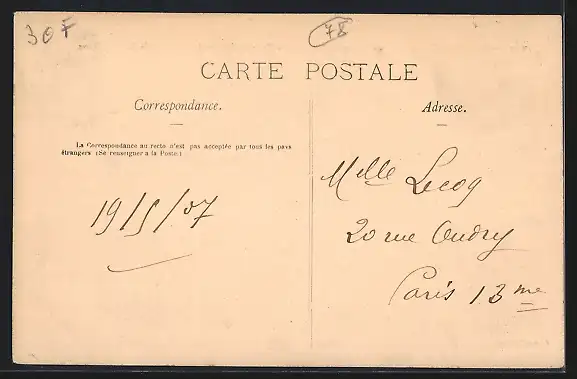 30F
78
CARTE POSTALE
Correspondance.
Adresse.
La Correspondance au recto n'est pas acceptée par tous les pays
étrangers (Se renseigner à la Poste.)
19/5/07
Melle Lecoq
20 rue Oudry
Paris 13 me